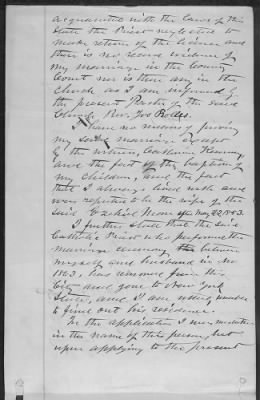 acquainted with the laws of this
State the Priest neglected to
make return of the license and
there is no record evidence of
my marriage in the County
Court nor is there any in the
Church as I am informed by
the present Pastor of the said
Church Rev. Jos
I have no means of proving
my said marriage except
by the witness,
and the fact of the baptism of
my children, and the fact
that I always lived with and
was reputed to be the wife of the
said after May 22, 1863.
I further state that the said
Catholic Priest who performed the
marriage ceremony between
myself and husband in
1863, has removed from this
City and gone to New York
State, and I am using
to find out his residence.
In the application I was mistaken
in the name of this person, but
upon applying to the present